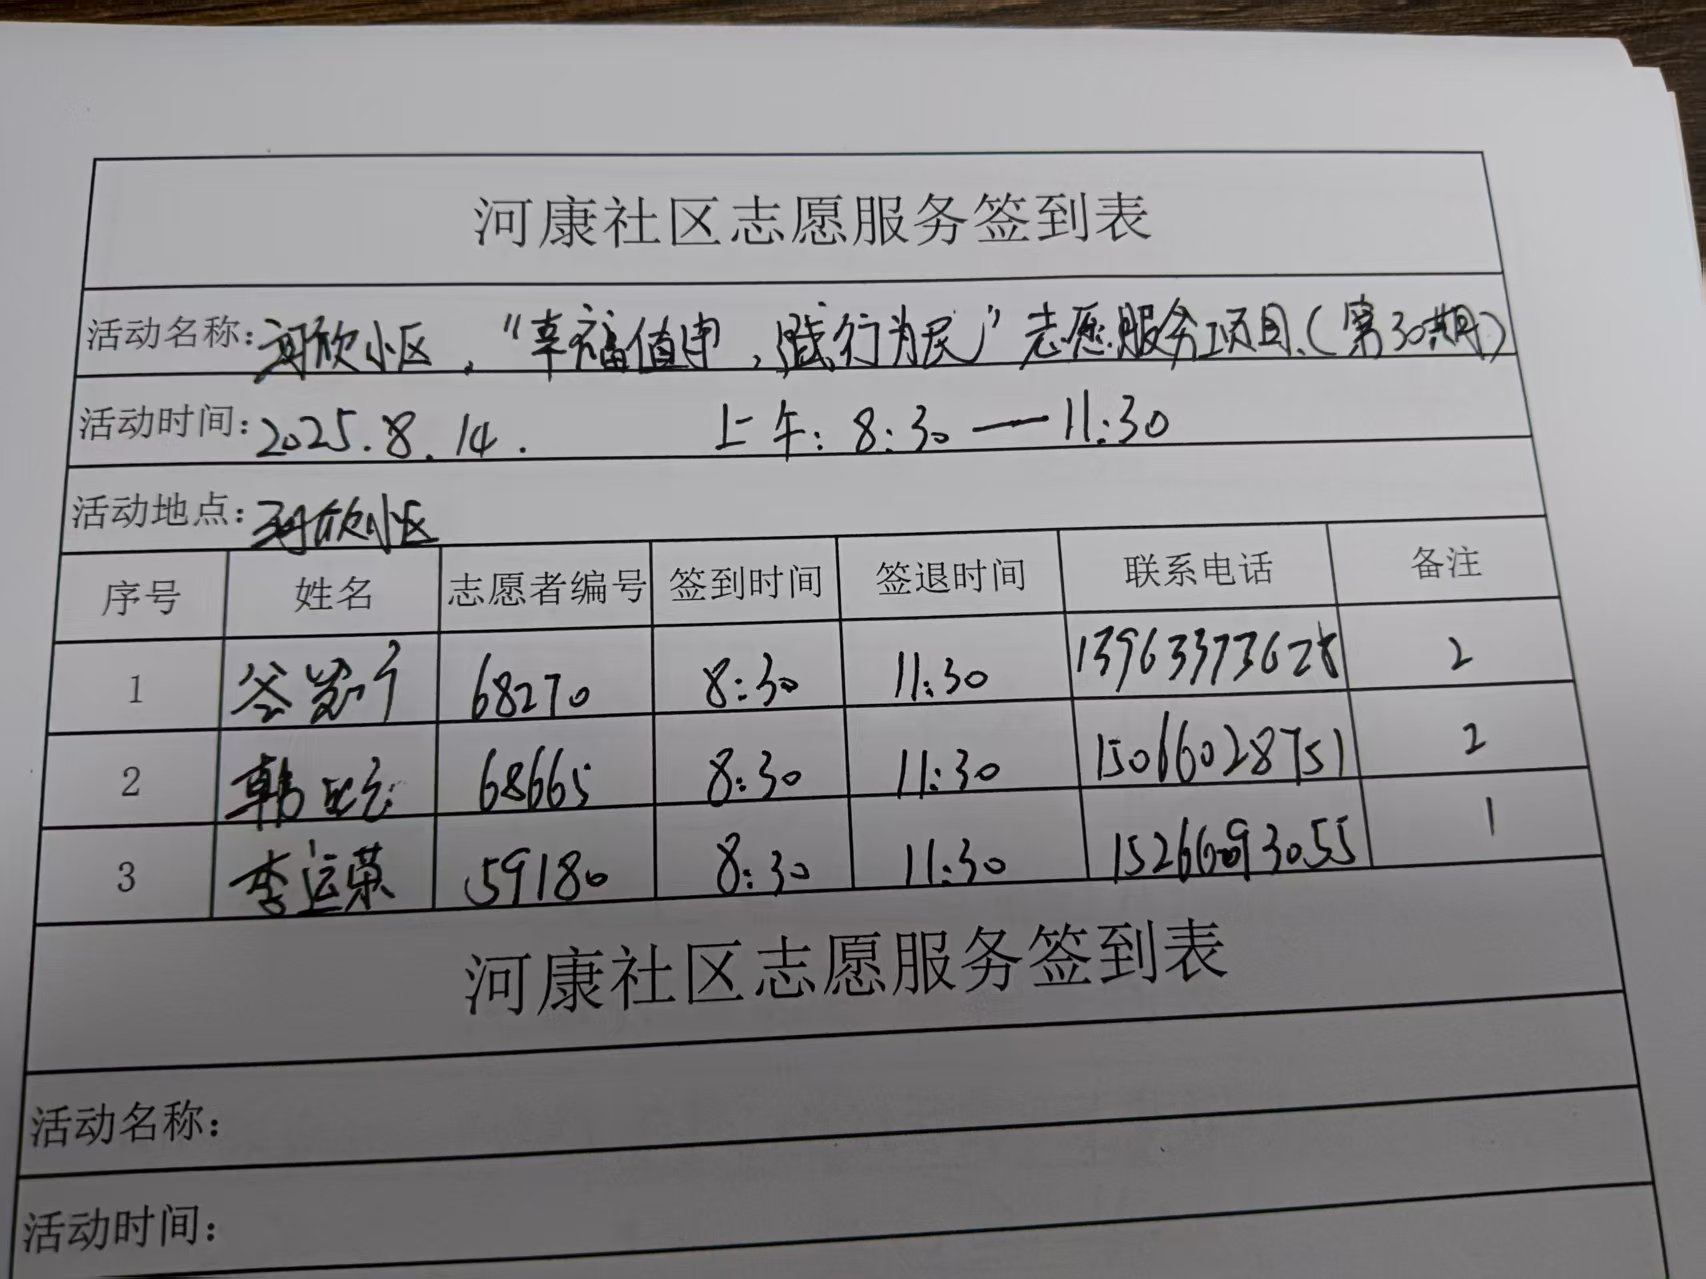 河康社区志愿服务签到表
活动名称: 河欣小区,“幸福值申,践行为民”志愿服务项目.(第30期)
活动时间: 2025.8.14. 上午: 8:30 — 11:30
活动地点: 河欣小区
序号 姓名 志愿者编号 签到时间 签退时间 联系电话 备注
1 68270 8:30 11:30 13963373628 2
2 韩 68665 8:30 11:30 15066028751 2
3 李运荣 59180 8:30 11:30 15266093055 1
河康社区志愿服务签到表
活动名称:
活动时间: